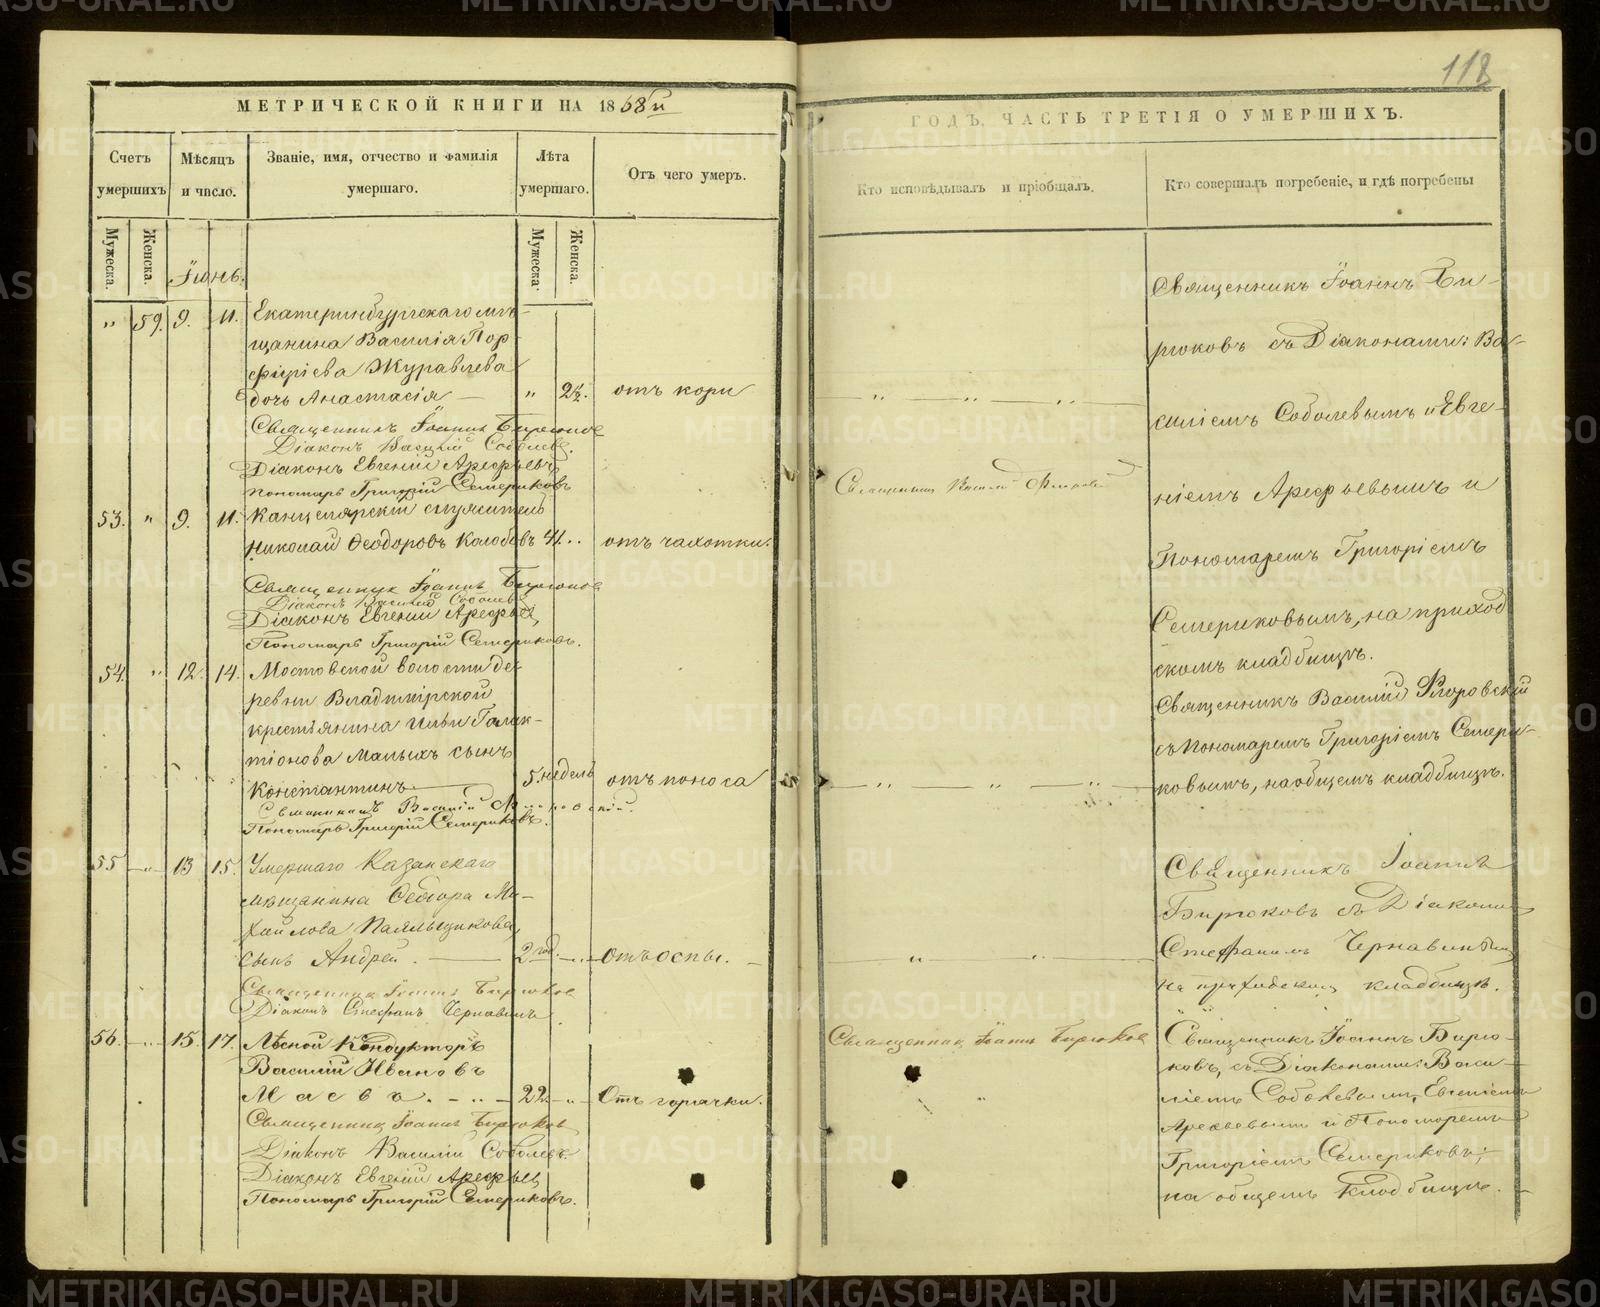 118
МЕТРИЧЕСКОЙ КНИГИ НА 1868й
ГОДЪ, ЧАСТЬ ТРЕТІЯ О УМЕРШИХЪ.
Счетъ умершихъ
Мѣсяцъ и число.
Званіе, имя, отчество и фамилія умершаго.
Лѣта умершаго.
Отъ чего умеръ.
Кто исповѣдывалъ и пріобщалъ.
Кто совершалъ погребеніе, и гдѣ погребены
Мужеска.
Женска.
Мужеска.
Женска.
Іюнь.
" 59. 9. 11. Екатеринбургскаго мѣ-
щанина Василія Пор-
фиріева Журавлева
дочь Анастасія — " 2½. отъ кори
Священникъ Іоаннъ Бирюковъ
Діаконъ Василій Соболевъ.
Діаконъ Евгеній Арефьевъ
Пономарь Григорій Семериковъ
Священникъ Іоаннъ Би-
рюковъ съ Діаконами: Ва-
силіемъ Соболевымъ и Евге-
ніемъ Арефьевымъ и
Пономаремъ Григоріемъ
Семериковымъ, на приход
скомъ кладбищѣ.
53. " 9. 11. Канцелярскій служитель
Николай Ѳеодоровъ Колобовъ 41. отъ чахотки.
Священникъ Іоаннъ Бирюковъ
Діаконъ Василій Соболевъ
Діаконъ Евгеній Арефьевъ
Пономарь Григорій Семериковъ.
Священникъ Василій Флоровскій
54. " 12. 14. Мостовской волости де-
ревни Владимірской
крестьянина Ильи Галак-
тіонова Малыхъ сынъ
Константинъ — 5. недель отъ поноса
Священникъ Василій Флоровскій.
Пономарь Григорій Семериковъ.
Священникъ Василій Флоровскій
съ Пономаремъ Григоріемъ Семери-
ковымъ, на общемъ кладбищѣ.
55 " 13 15. Умершаго Казанскаго
мѣщанина Ѳедора Ми-
хайлова Паяльщикова
сынъ Андрей. — 2 год. " Отъ оспы.
Священникъ Іоаннъ Бирюковъ
Діаконъ Стефанъ Чернавинъ.
Священникъ Іоаннъ
Бирюковъ съ Діакономъ
Стефаномъ Чернавинымъ
на приходскомъ кладбищѣ.
56. " 15. 17. Лѣсной Кондукторъ
Василій Ивановъ
22. " Отъ горячки.
Священникъ Іоаннъ Бирюковъ
Діаконъ Василій Соболевъ
Діаконъ Евгеній Арефьевъ
Пономарь Григорій Семериковъ.
Священникъ Іоаннъ Бирюковъ
Священникъ Іоаннъ Бирю-
ковъ, съ Діаконами: Васи-
ліемъ Соболевымъ, Евгеніемъ
Арефьевымъ и Пономаремъ
Григоріемъ Семериковымъ;
на общемъ кладбищѣ.
METRIKI.GASO-URAL.RU